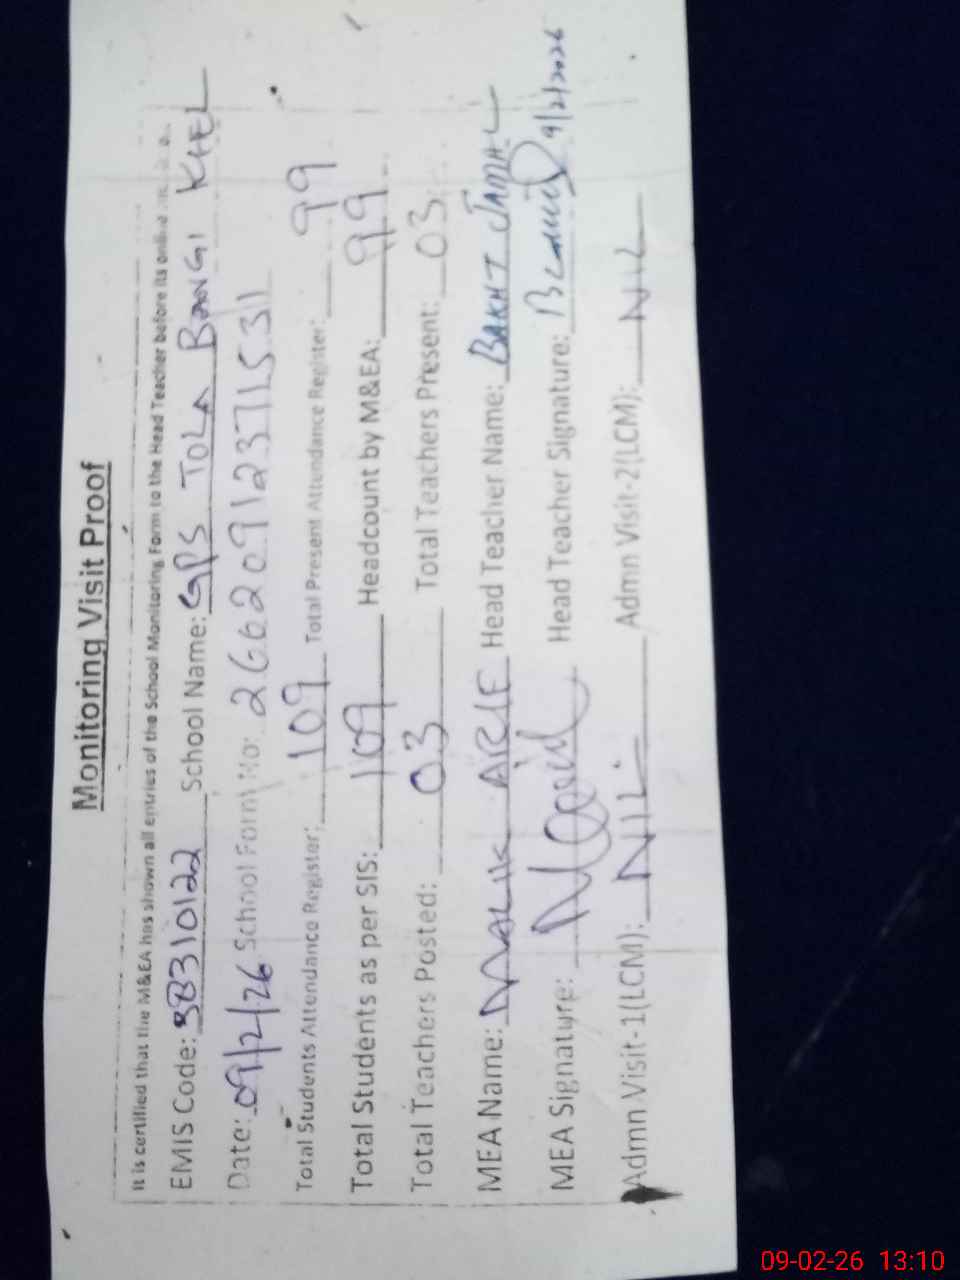 Monitoring Visit Proof
It is certified that the M&EA has shown all entries of the School Monitoring Form to the Head Teacher before its online
EMIS Code: 38310122 School Name: GPS TOLA BANGI KHEL
Date: 09/2/26 School Form No: 266209123715311
Total Students Attendance Register: 109 Total Present Attendance Register: 99
Total Students as per SIS: 109 Headcount by M&EA: 99
Total Teachers Posted: 03 Total Teachers Present: 03
MEA Name: MALIK ARIF Head Teacher Name: BAKHT JAMAL
MEA Signature: Head Teacher Signature: 9/2/2026
Admn Visit-1(LCM): NIL Admn Visit-2(LCM): NIL
09-02-26 13:10